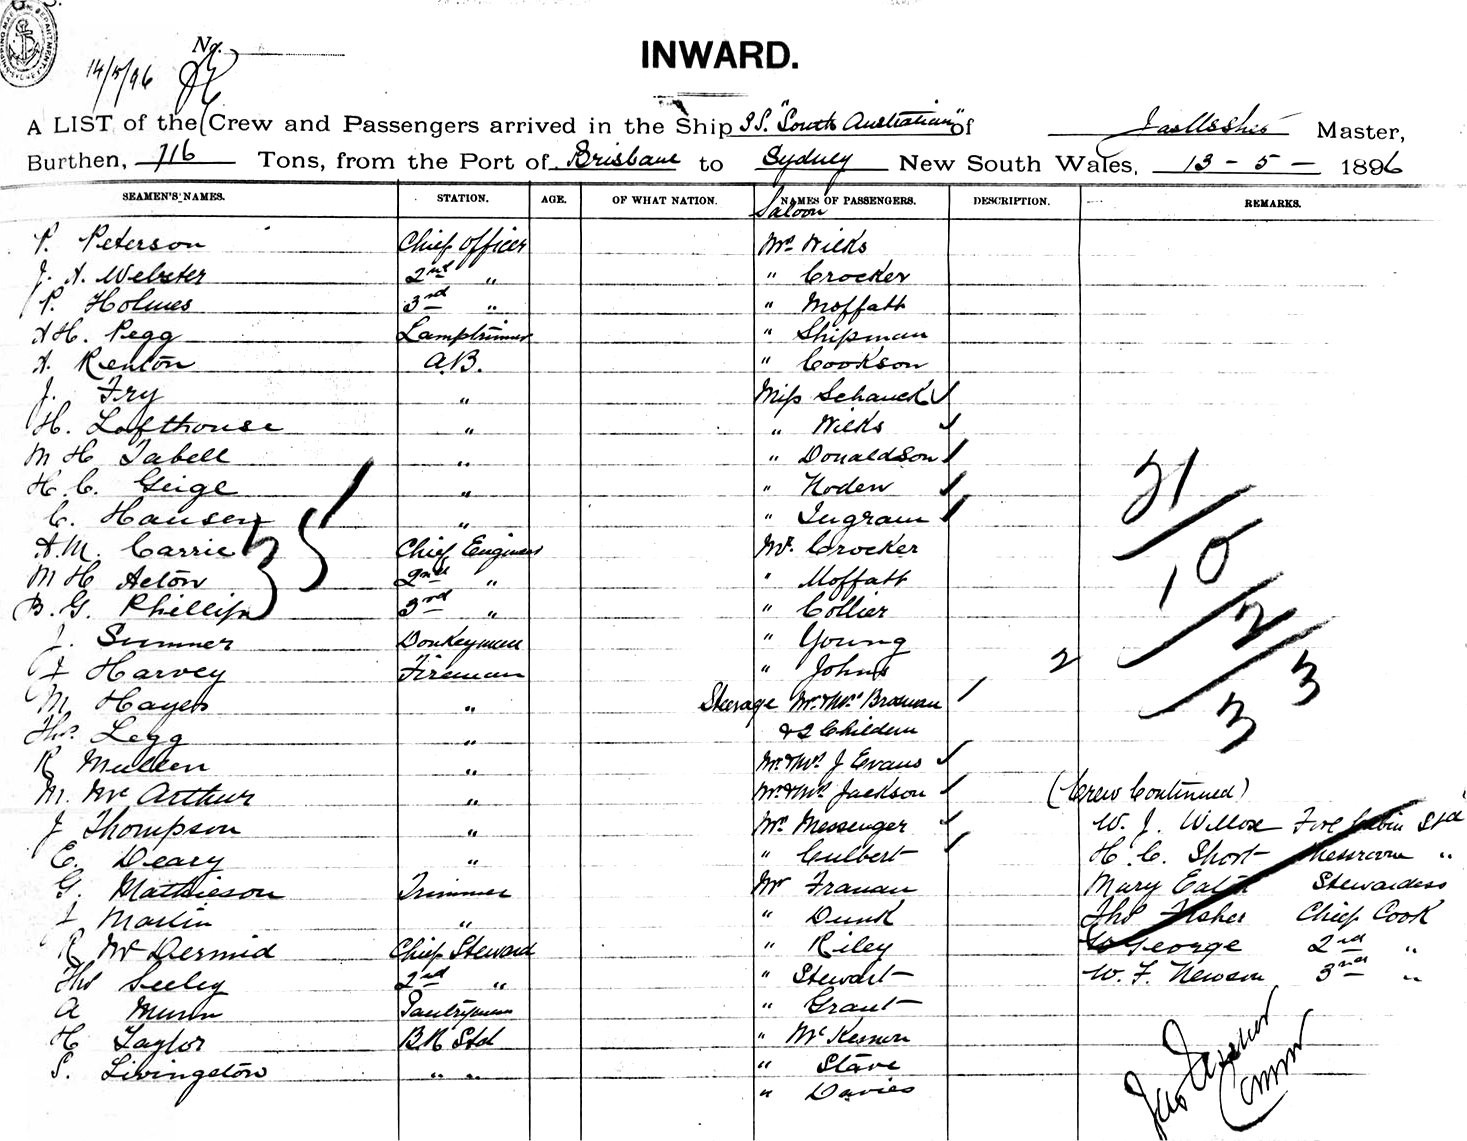 No.
14/5/96
INWARD.
A LIST of the Crew and Passengers arrived in the Ship S.S. "South Australian" of Master,
Burthen, 716 Tons, from the Port of Brisbane to Sydney New South Wales, 13 - 5 - 1896
SEAMEN'S NAMES. STATION. AGE. OF WHAT NATION. NAMES OF PASSENGERS. DESCRIPTION. REMARKS.
Saloon
P. Peterson Chief Officer Mrs Wilks
J. A. Webster 2nd " " Crocker
P. Holmes 3rd " " Moffatt
A H. Pegg Lamptrimmer " Shipman
A. Renton A.B. " Cookson
J. Fry " Miss Schauck
H. Lofthouse " " Wilks
M H Tabell " " Donaldson
H. C. Geige " " Noden
C. Hansen " " Ingram
A. M. Carrie Chief Engineer Mr. Crocker
M H Acton 2nd " " Moffatt
B. G. Phillips 3rd " " Collier
J. Sumner Donkeyman " Young
F Harvey Fireman " Johns
M Hayes " Steerage Mr & Mrs Brosnan
Thos. Legg " & 2 Children
R Mullen " Mr & Mrs J Evans
M. McArthur " Mr & Mrs Jackson (Crew Continued)
J Thompson " Mrs Messenger W. J. Willox Fore Cabin Std
E. Deary " " Culbert H. C. Short Messroom "
G. Mathieson Trimmer Mr Franan Mary Eatin Stewardess
F Martin " " Dunk Thos Fisher Chief Cook
R McDermid Chief Steward " Riley George 2nd "
Thos Seeley 2nd " " Stewart W. F. Newson 3rd "
A Munn Pantryman " Grant
H Taylor B R Std " McKesson
S. Livingston " " " Stave
" Davies
21
10
2
2
3
3